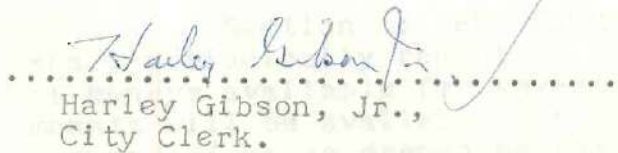 Harley Gibson Jr.
Harley Gibson, Jr.,
City Clerk.